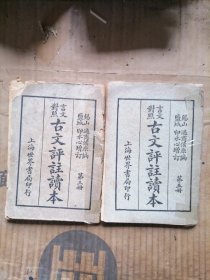 錫山 過商侯原編
鹽城 印水心增訂
言文
對照
古文評註讀本
上海世界書局印行
錫山 過商侯原編
鹽城 印水心增訂
第五冊
言文
對照
古文評註讀本
上海世界書局印行